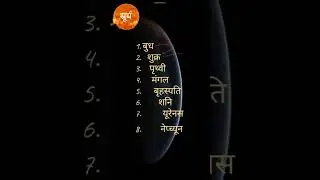 सूर्य
1. बुध
2. शुक्र
3. पृथ्वी
4. मंगल
5. बृहस्पति
6. शनि
7. यूरेनस
8. नेप्च्यून